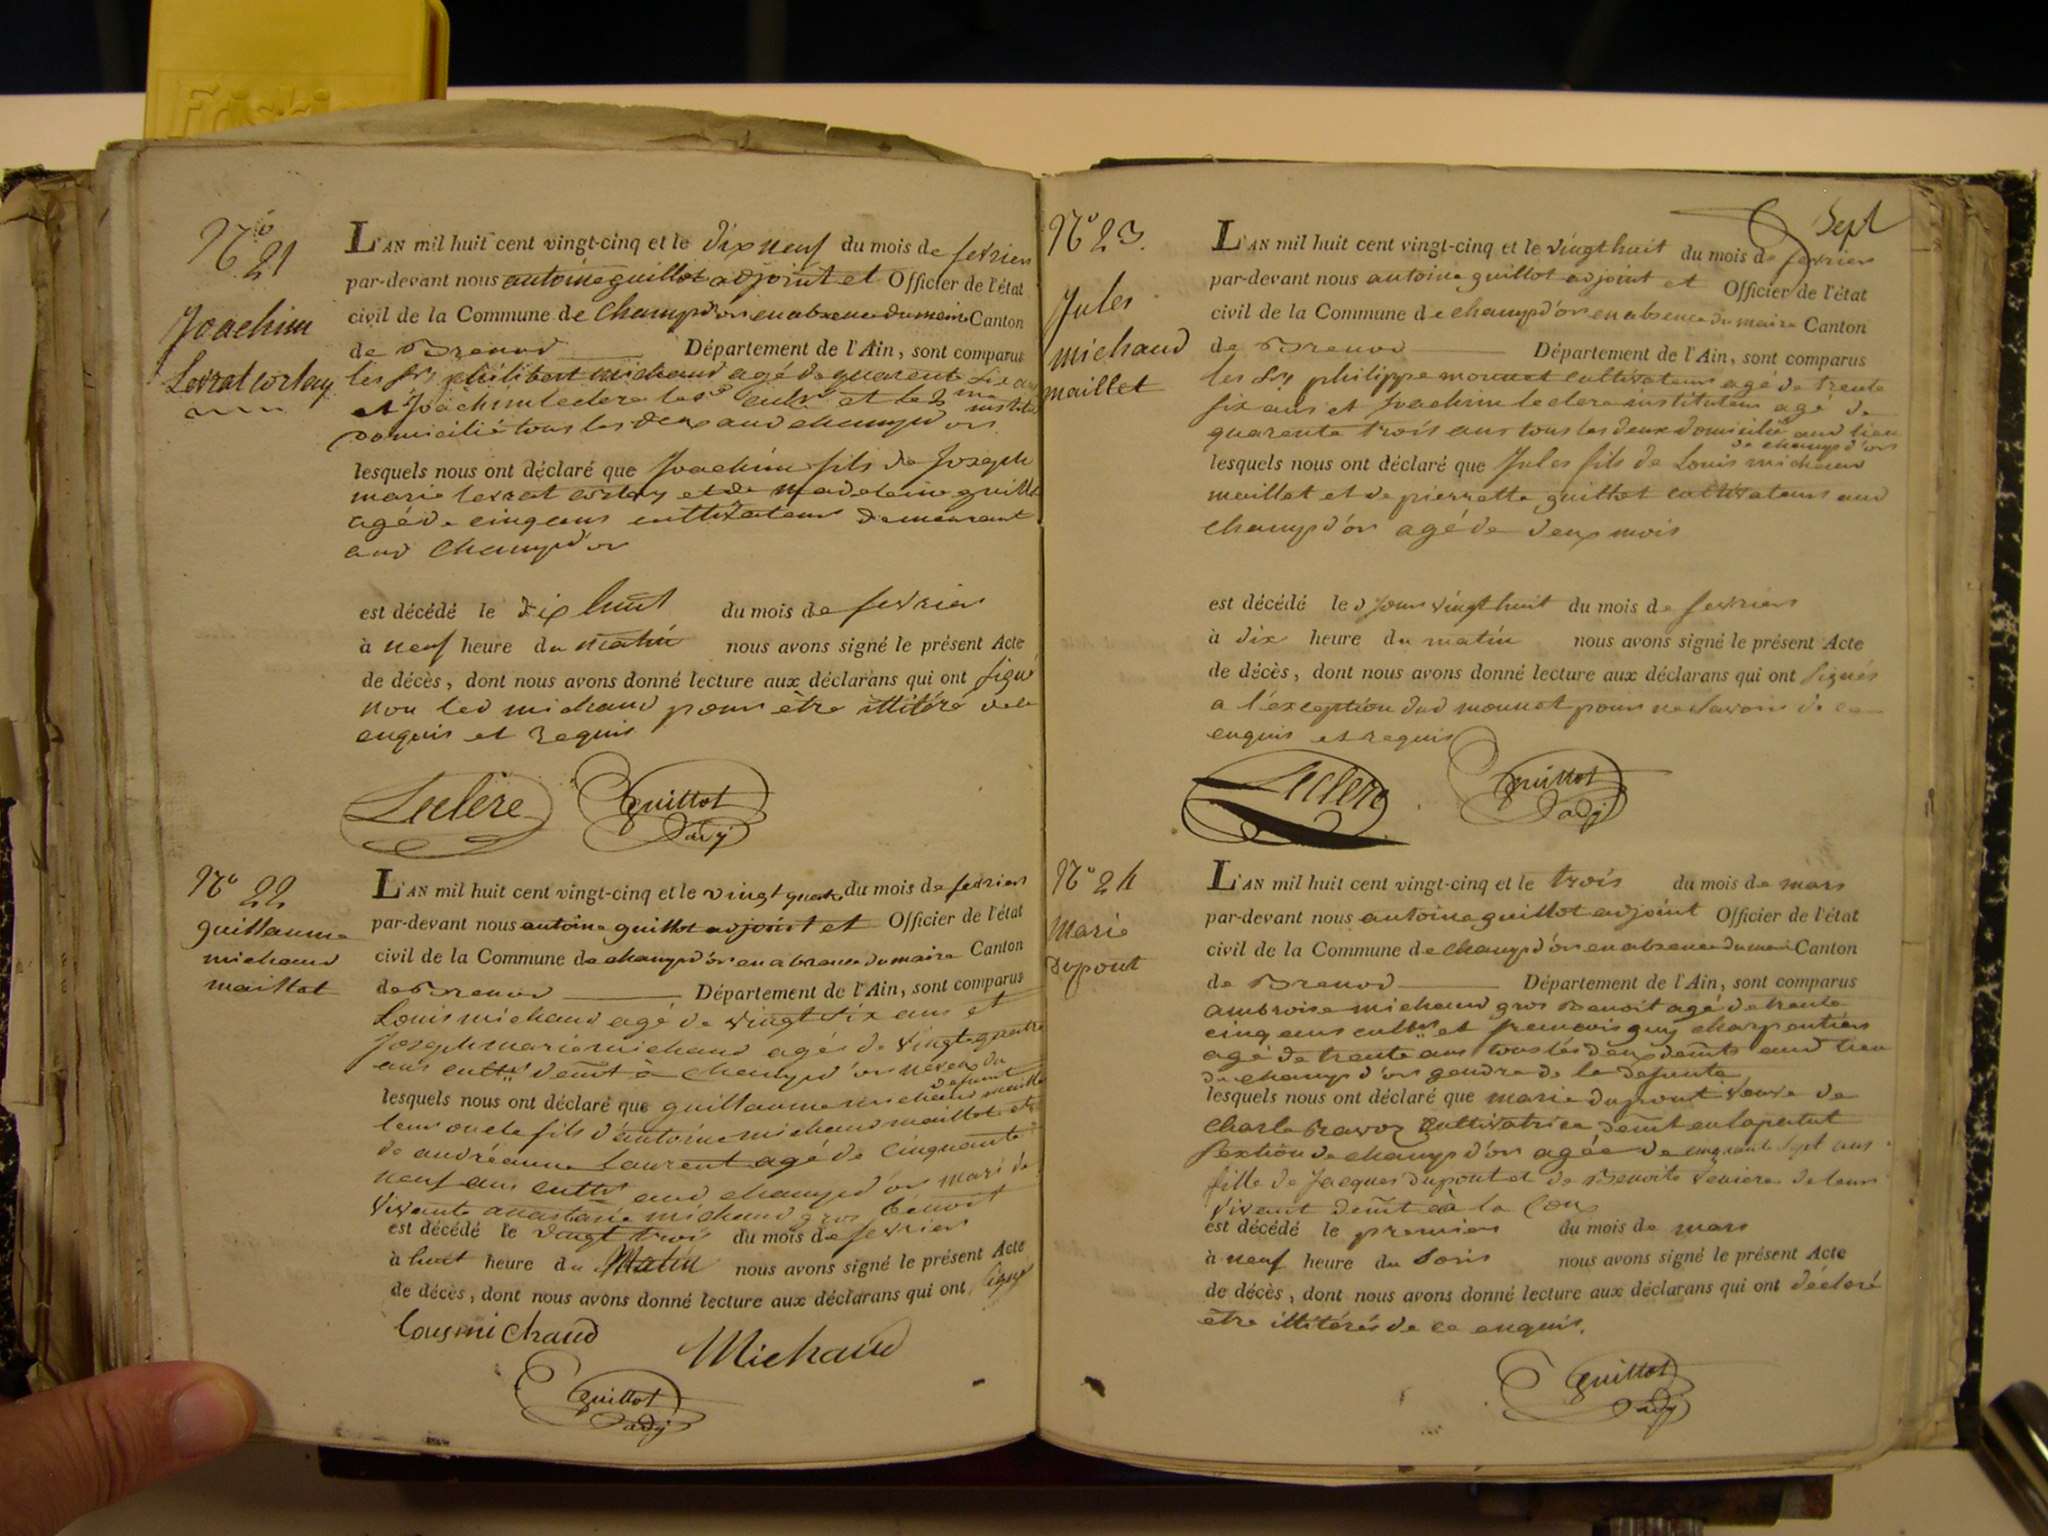 Friskies
Nº 21
Joachim
Levrat Cortay
L'AN mil huit cent vingt-cinq et le dix neuf du mois de fevrier
par-devant nous antoine guillot adjoint et Officier de l'état
civil de la Commune de Champd'or en absence du maire Canton
de Brenod Département de l'Ain, sont comparus
les Srs philibert michaud agé de quarente six ans
et Joachim leclere
domicilié tous les deux aud champd'or
lesquels nous ont déclaré que Joachim fils de Joseph
marie levrat cortay et de madeleine guillot
agé de cinq ans cultivateur demeurant
aud Champd'or
est décédé le dix huit du mois de fevrier
à neuf heure du matin nous avons signé le présent Acte
de décès, dont nous avons donné lecture aux déclarans qui ont signé
non led michaud pour être illitéré de ce
enquis et requis
Leclere guillot
adj
Nº 22
guillaume
michaud
maillot
L'AN mil huit cent vingt-cinq et le vingt quatre du mois de fevrier
par-devant nous antoine guillot adjoint et Officier de l'état
civil de la Commune de champd'or en absence du maire Canton
de Brenod Département de l'Ain, sont comparus
Louis michaud agé de vingt six ans et
Joseph marie michaud agé de vingt quatre
ans cultrs demt à champd'or neveux du
defunt
lesquels nous ont déclaré que guillaume michaud maillot
leur oncle fils d'antoine michaud maillot et
de andréanne Laurent agé de cinquante
neuf ans cultr aud champd'or mari de
vivante anastasie michaud gros benoit
est décédé le vingt trois du mois de fevrier
à huit heure du Matin nous avons signé le présent Acte
de décès, dont nous avons donné lecture aux déclarans qui ont signé
Louis michaud Michaud
guillot
adj
Sept
Nº 23.
Jules
michaud
maillet
L'AN mil huit cent vingt-cinq et le vingt huit du mois de fevrier
par-devant nous antoine guillot adjoint et Officier de l'état
civil de la Commune de champd'or en absence du maire Canton
de Brenod Département de l'Ain, sont comparus
les Srs philippe monnet cultivateur agé de trente
six ans et Joachim leclere instituteur agé de
quarente trois ans tous les deux domicilié aud lieu
de champd'or
lesquels nous ont déclaré que Jules fils de Louis michaud
maillet et de pierrette guillot cultivateurs aud
champd'or agé de deux mois
est décédé le d jour vingt huit du mois de fevrier
à dix heure du matin nous avons signé le présent Acte
de décès, dont nous avons donné lecture aux déclarans qui ont signés
a l'exception dud monnet pour ne savoir de ce
enquis et requis
Leclere guillot
adj
Nº 24
Marie
dupont
L'AN mil huit cent vingt-cinq et le trois du mois de mars
par-devant nous antoine guillot adjoint Officier de l'état
civil de la Commune de champd'or en absence du maire Canton
de Brenod Département de l'Ain, sont comparus
ambroise michaud gros Benoit agé de trente
cinq ans cultr et francois guy charpentier
agé de trente ans tous les deux demts aud lieu
de champd'or gendre de la defunte
lesquels nous ont déclaré que marie dupont veuve de
Charle Ravoz cultivatrice demt en
section de champd'or agée de cinquante sept ans
fille de Jacques dupont et de Benoite de leur
vivant demt à la
est décédé le premier du mois de mars
à neuf heure du soir nous avons signé le présent Acte
de décès, dont nous avons donné lecture aux déclarans qui ont déclaré
etre illitérés de ce enquis.
guillot
adj